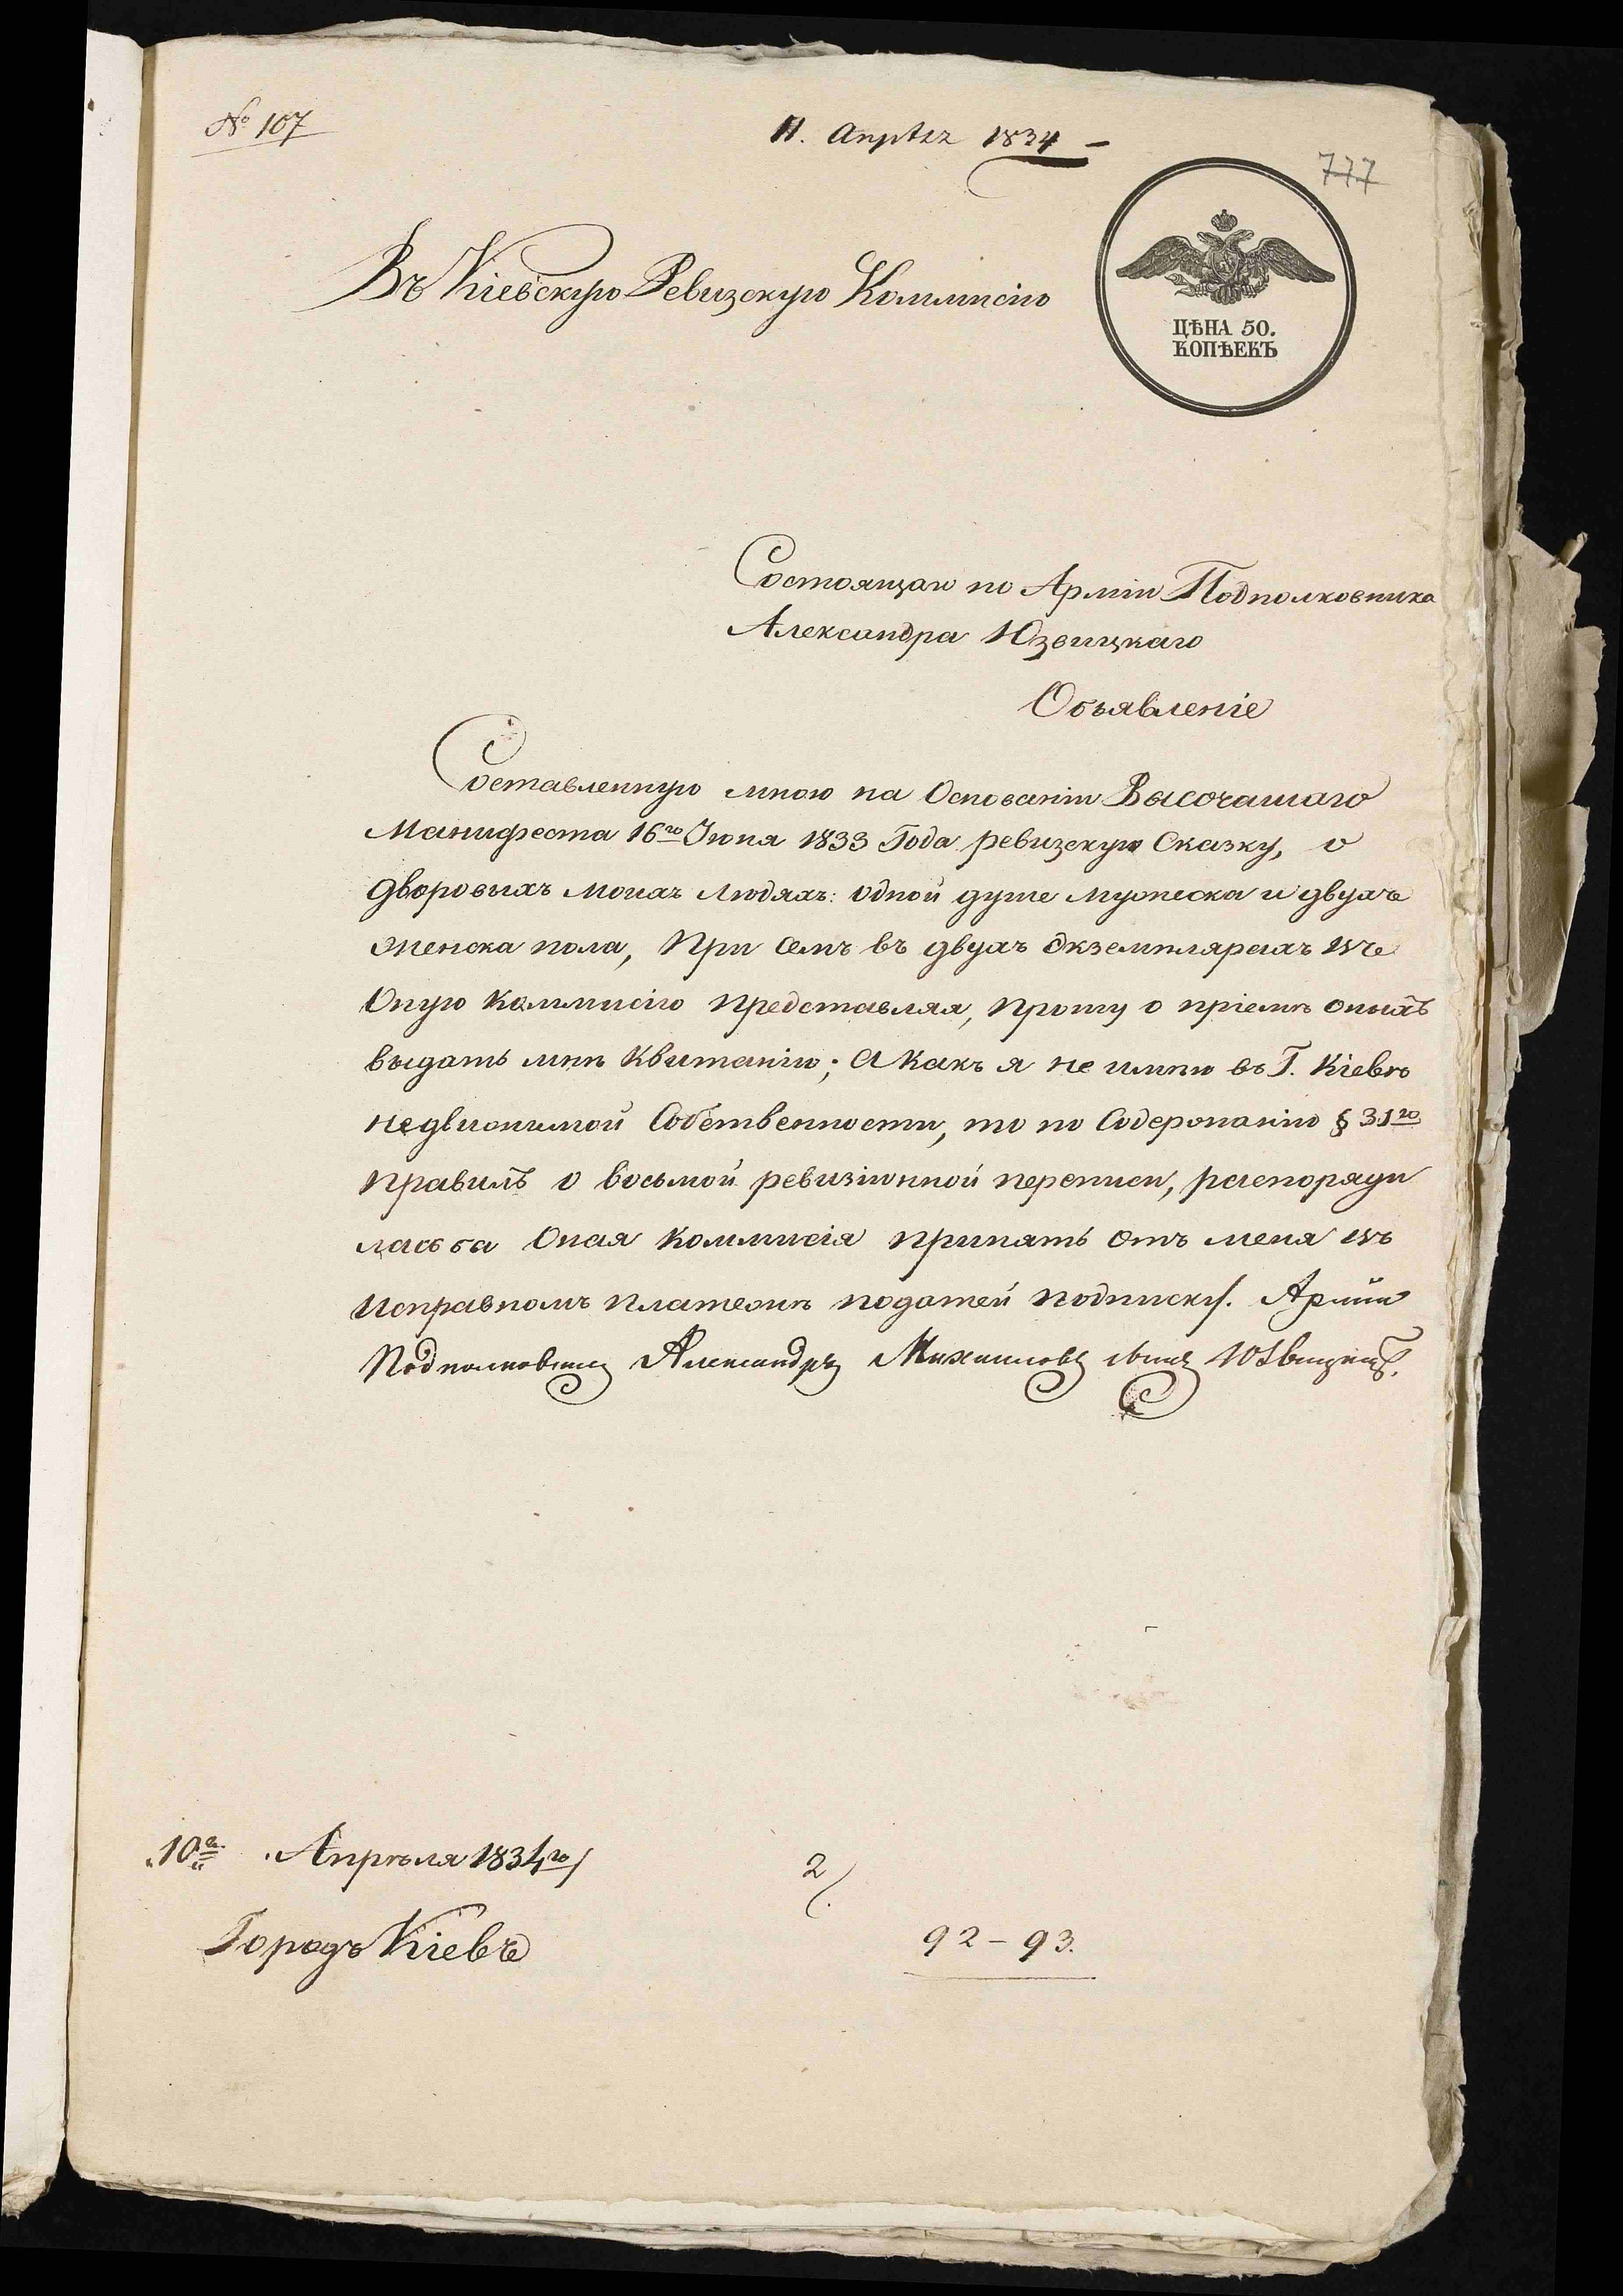 № 107
11. Апрѣля 1834 —
777
ЦѢНА 50.
КОПѢЕКЪ
Въ Кіевскую Ревизскую Коммисію
Состоящаго по Арміи Подполковника
Александра Юзвицкаго
Объявленіе
Составленную мною на Основаніи Высочашаго
Манифеста 16го Іюня 1833 Года ревизскую Сказку, о
дворовыхъ моихъ людяхъ: одной душе мужеска и двухъ
женска пола, При семъ въ двухъ экземплярахъ въ
Оную коммисію представляя, прошу о пріемѣ оныхъ
выдать мнѣ Квитанію; А какъ я не имѣю въ Г. Кіевѣ
недвижимой Собственности, то по Содержанію § 31го
правилъ о восьмой ревизіонной переписи, распоряди
лась ба Оная коммисія принять отъ меня въ
Исправномъ платежѣ податей подписку/. Арміи
Подполковникъ Александръ Михайловъ сынъ Юзвицкій.
„10го“ Апрѣля 1834го/
Городъ Кіевъ
2/.
92 – 93.